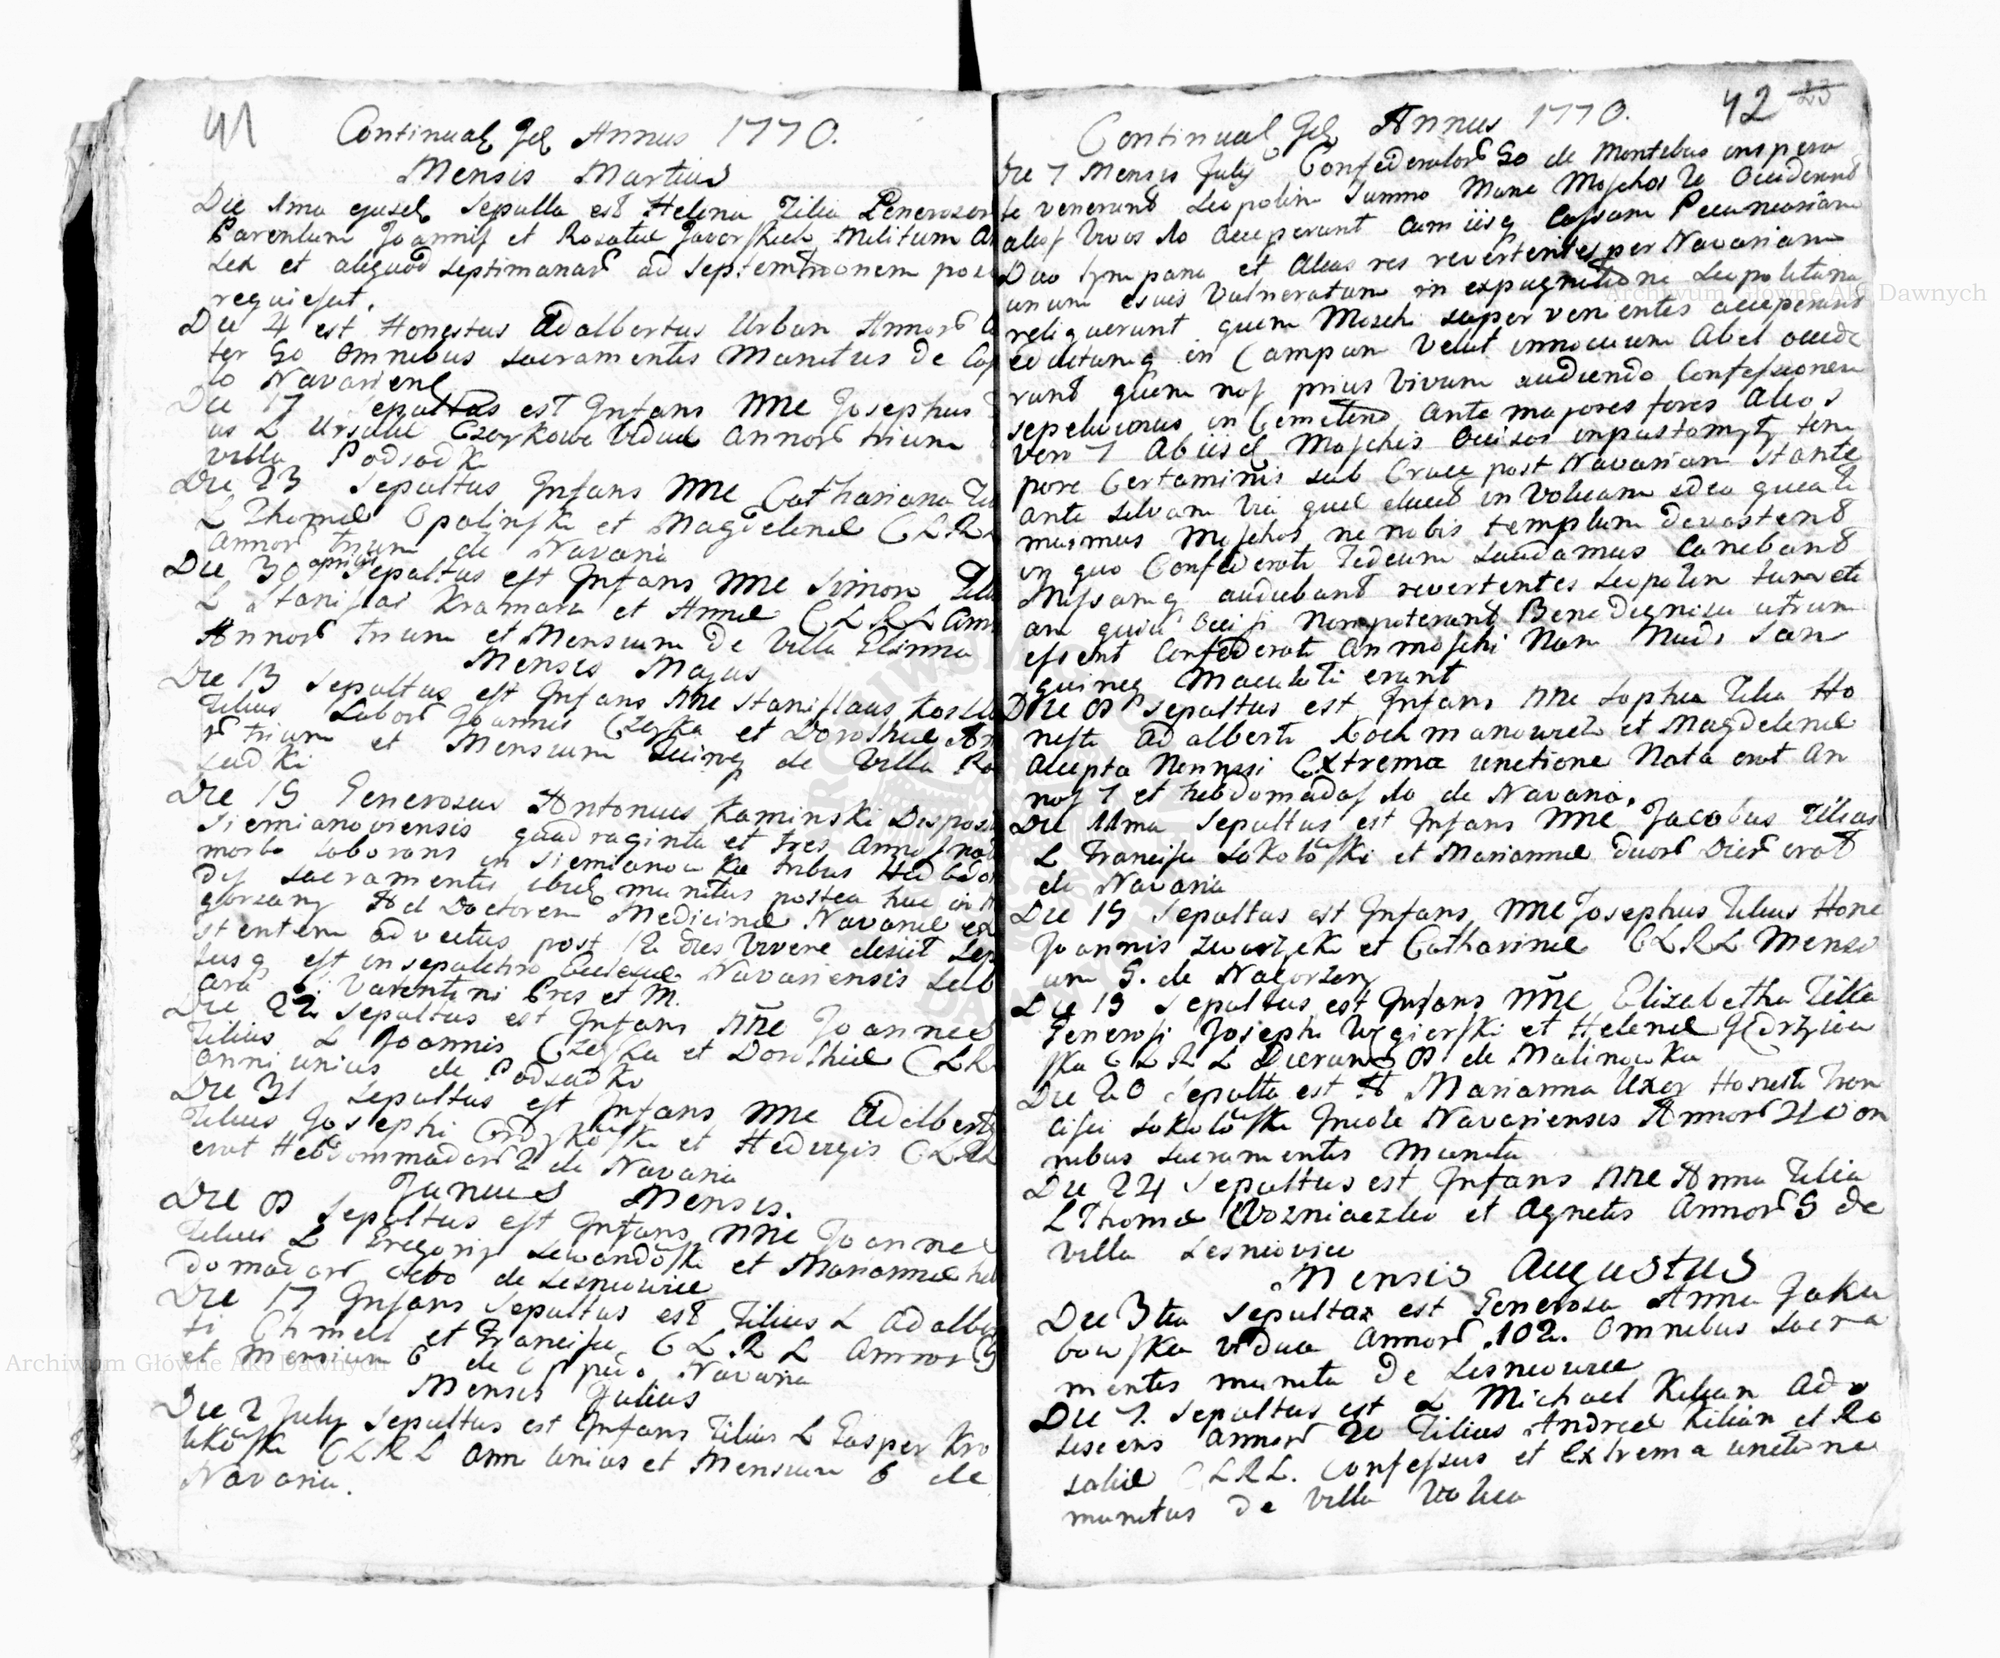 41
Continual Annus 1770.
Mensis Martius
Die 1ma ejusd Sepulta est Helena Filia Generosor
Parentum Joannis et Rosaliæ Javorskich Militum
sex et aliquod septimanar ad septemtrionem
requiescit.
Die 4 est Honestus Adalbertus Urban Annor
ter 50 omnibus sacramentis Munitus de
to Navariens
Die 17 Sepultus est Infans NNe Josephus
us L Ursulæ viduæ annor trium
villa Podsadki
Die 23 Sepultus Infans NNe Cathariana
L Thomæ Opalinski et Magdelenæ CLRL
annor trium de Navaria
Die 30 aprilis Sepultus est Infans NNe Simon
L Stanislai Kramara et Annæ CLRL
Annor trium et Mensium de Villa Glinna
Mensis Majus
Die 13 Sepultus est Infans NNe Stanislaus
Filius Labor Joannis Czeyka et Dorotheæ
trium et Mensium quinq de Villa
sadki
Die 15 Generosus Antonius Kaminski
Siemianoviensis quadraginta et tres Annos
morbo laborans in Siemianowka tribus
sacramentis ibid munitus postea huc in
gorzany Ad Doctorem Medicinæ Navariæ
stentem advectus post 12 dies vivere desiit
tusq est in sepulchro Ecclesiæ Navariensis
ara S. Varentini Pres et M.
Die 22 Sepultus est Infans NNe Joannes
Filius L Joannis Czeyka et Dorotheæ CLR
anni unius de Podsadki
Die 31 Sepultus est Infans NNe Adalbert
Filius Josephi et Hedvigis CLRL
erat Hebdommadar 2 de Navaria
Junius Mensis.
Die 8 Sepultus est Infans NNe Joannes
Filius L Gregorij Lewandoski et Mariannæ
domadar octo de Lesniowice
Die 17 Infans Sepultus est Filius L Adalber
ti Chmell et Franciscæ CLRL Annor
et Mensium 6 de Navaria
Mensis Julius
Die 2 July Sepultus est Infans Filius L Gasper Kro
likoski CLRL Ann unius et Mensium 6 de
Navaria.
42 23
Continual Annus 1770.
Die 7 Mensis July Confederator 50 de Montibus inspera
te venerunt Leopolim summo Mane Moschos 12 Occiderunt
alios vivos 10 acceperunt cum iisq Cassam Pecuniariam
Duo tympana et Alias res revertentes per Navariam
unum e suis Vulneratum in expugnatione Leopolitana
reliquerunt quem Moschi supervenientes acceperunt
eductumq in Campum Velut innocuum Abel occide
runt quem nos prius vivum audiendo Confessionem
sepelivimus in Cemeterio ante majores fores Alios
vero 7 Ab iisd Moschis Occisos tem
pore Certaminis sub Cruce post Navariam stante
ante silvam via quæ ducit in Volicam ideo quia ti
muimus Moschos ne nobis templum devastent
in quo Confederati Tedeum laudamus canebant
Missamq audiebant revertentes Leopolim tum eti
am quia Occisi Non poterant Bene Dignisci utrum
essent Confederati an Moschi Nam Nudi San
guineq Maculati erant
Die 8 Sepultus est Infans NNe Sophia Filia Ho
nesti Adalberti Kochmanowicz et Magdelenæ
Accepta Nonnisi Extrema unctione Nata erat An
nos 7 et hebdomadas 10 de Navaria.
Die 11ma Sepultus est Infans NNe Jacobus Filius
L Francisci Sokoloski et Mariannæ duor Dier erat
de Navaria
Die 15 Sepultus est Infans NNe Josephus Filius Hone
Joannis et Catharinæ CLRL Mensi
um 5. de Nagorzan
Die 19 Sepultus est Infans NNe Elizabetha Filia
Generosi Josephi Węgierski et Helenæ
ska CLRL Dierum 8 de Malinowka
Die 20 Sepulta est Marianna Uxor Honesti Fran
cisci Sokoloski Incolæ Navariensis Annor 40 om
nibus sacramentis Munita
Die 24 Sepultus est Infans NNe Anna Filia
L Thomæ Wozniaczko et Agnetis Annor 5 de
villa Lesniovice
Mensis Augustus
Die 3tia Sepulta est Generosa Anna Jaku
bowska vidua Annor .102. Omnibus sacra
mentis munita de Lesniowice
Die 7. Sepultus est L Michael Kilian Ado
lescens annor 20 Filius Andreæ Kilian et Ro
saliæ CLRL. Confessus et Extrema unctione
munitus de Villa Volica
Archiwum Główne Akt Dawnych
Archiwum Główne Akt Dawnych